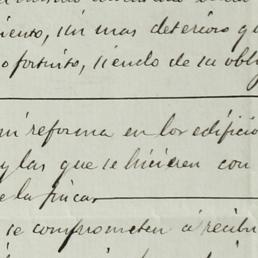 iento, sin mas deterioro q
o fortuito, siendo de su obl
ni reforma en los edificio
y las que se hicieren con
e la finca
se comprometen á recibi